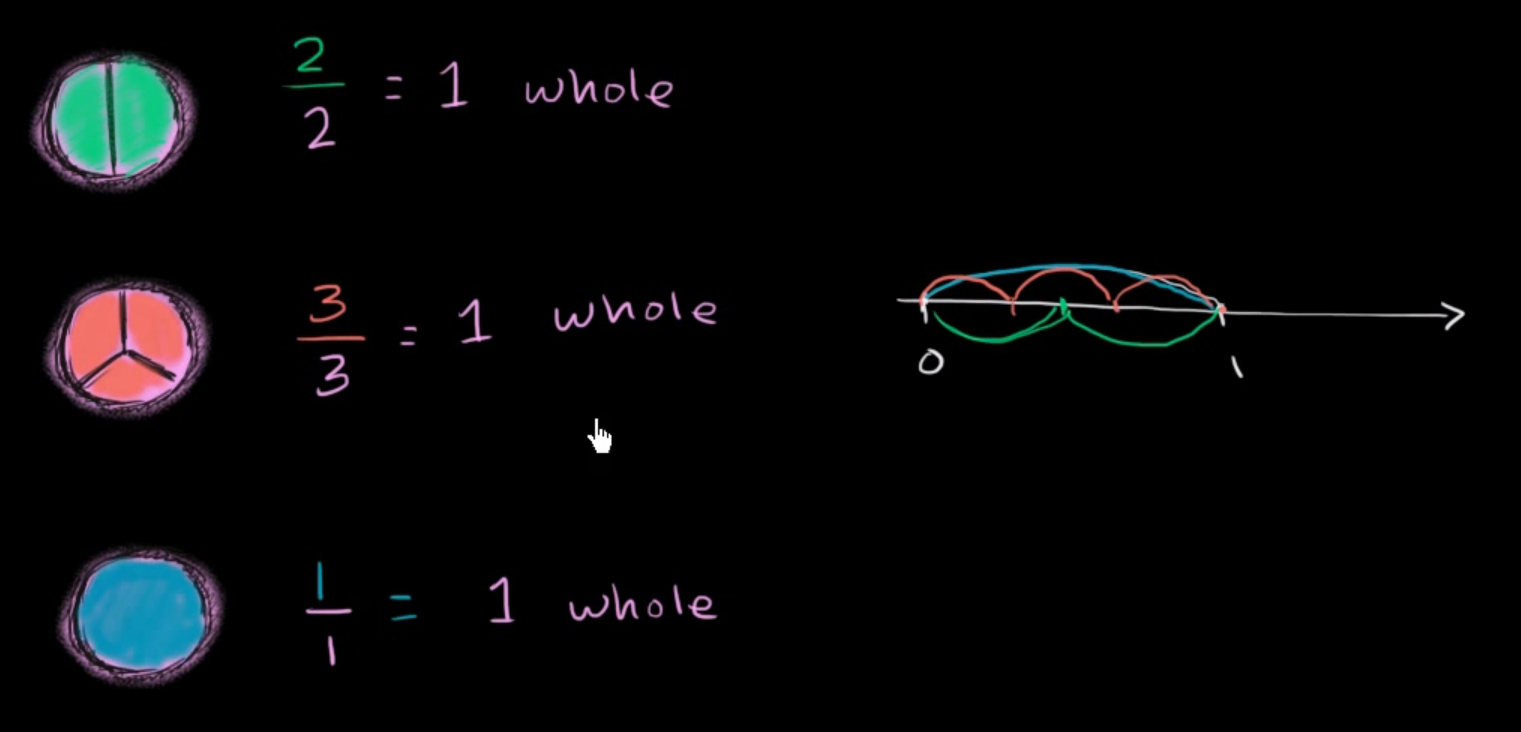 2/2 = 1 whole
3/3 = 1 whole
0 1
1/1 = 1 whole